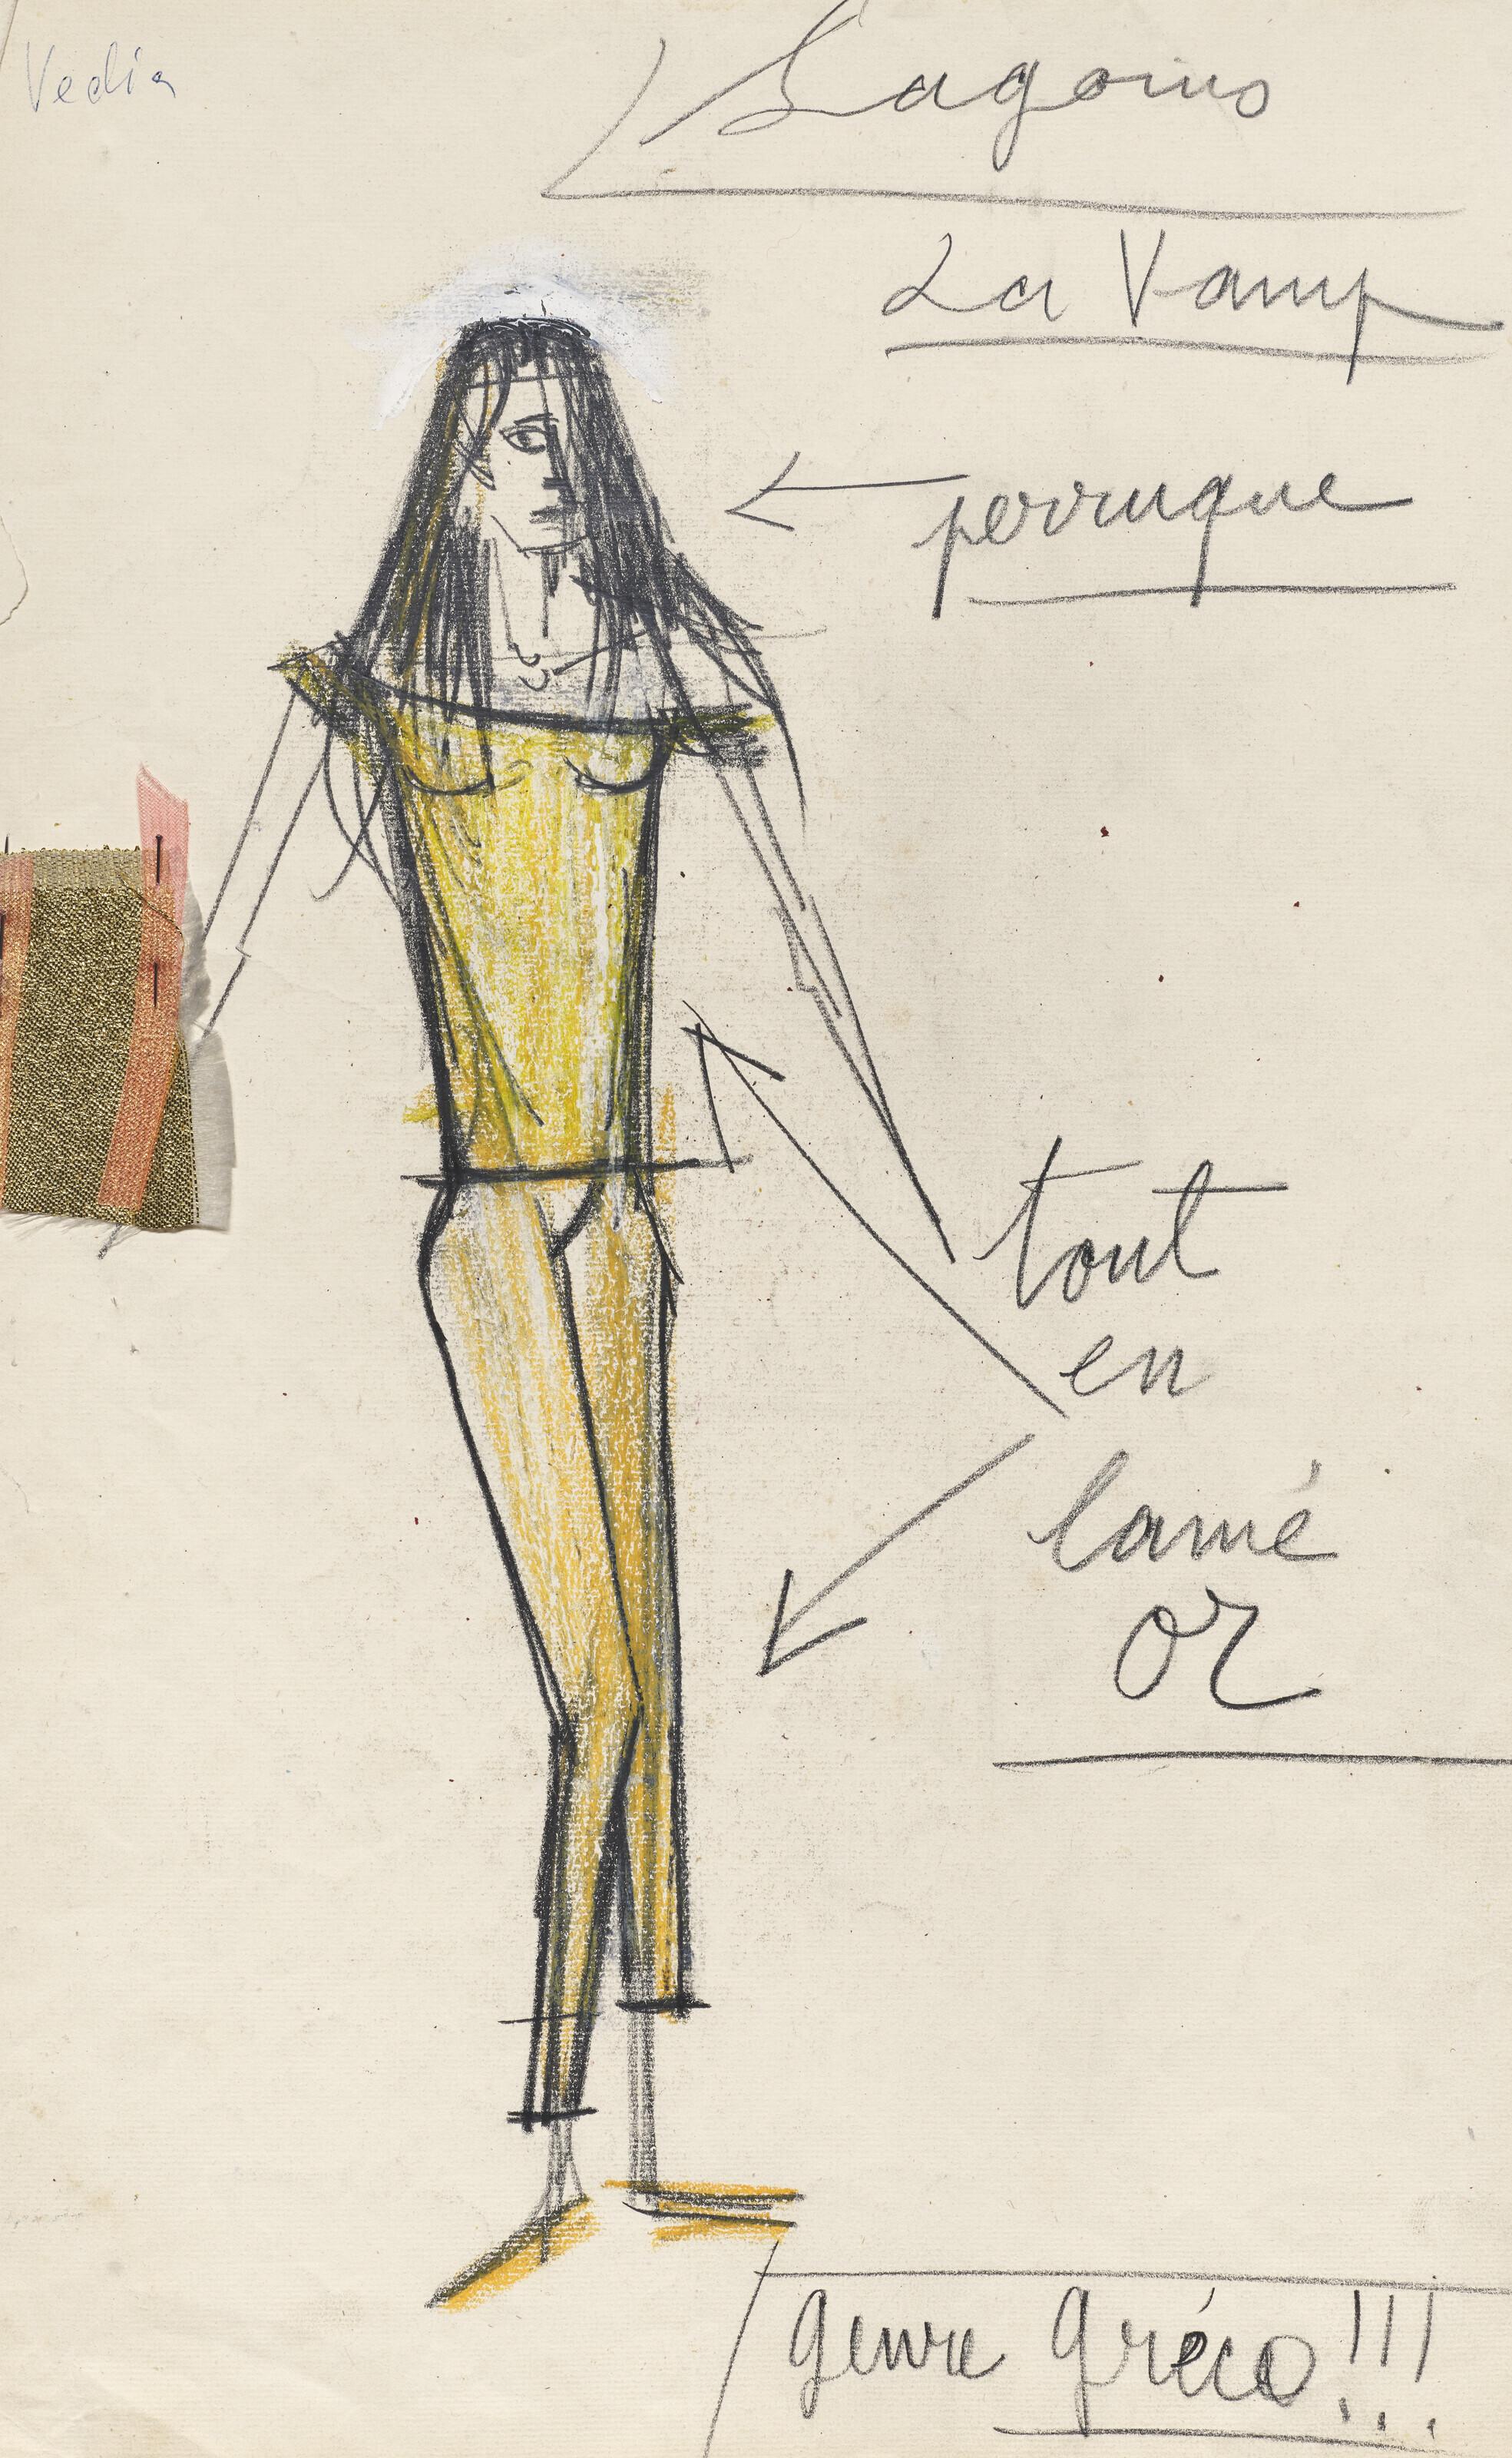 Vedia
La Vamp
perruque
tout
en
lamé
or
genre Gréco!!!